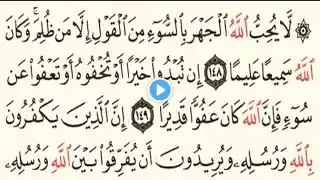 ۞ لَّا يُحِبُّ ٱللَّهُ ٱلْجَهْرَ بِٱلسُّوٓءِ مِنَ ٱلْقَوْلِ إِلَّا مَن ظُلِمَ ۚ وَكَانَ
ٱللَّهُ سَمِيعًا عَلِيمًا ١٤٨ إِن تُبْدُوا۟ خَيْرًا أَوْ تُخْفُوهُ أَوْ تَعْفُوا۟ عَن
سُوٓءٍ فَإِنَّ ٱللَّهَ كَانَ عَفُوًّا قَدِيرًا ١٤٩ إِنَّ ٱلَّذِينَ يَكْفُرُونَ
بِٱللَّهِ وَرُسُلِهِۦ وَيُرِيدُونَ أَن يُفَرِّقُوا۟ بَيْنَ ٱللَّهِ وَرُسُلِهِۦ